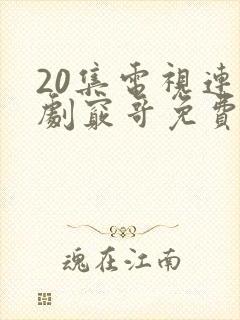 20集電視連
劇窮哥免費
魂在江南